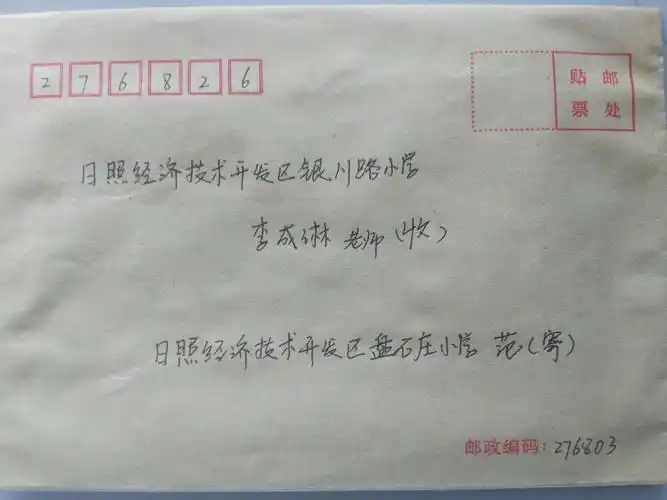 276826
贴邮
票处
日照经济技术开发区银川路小学
李成琳 老师(收)
日照经济技术开发区盘石庄小学 范(寄)
邮政编码:276803